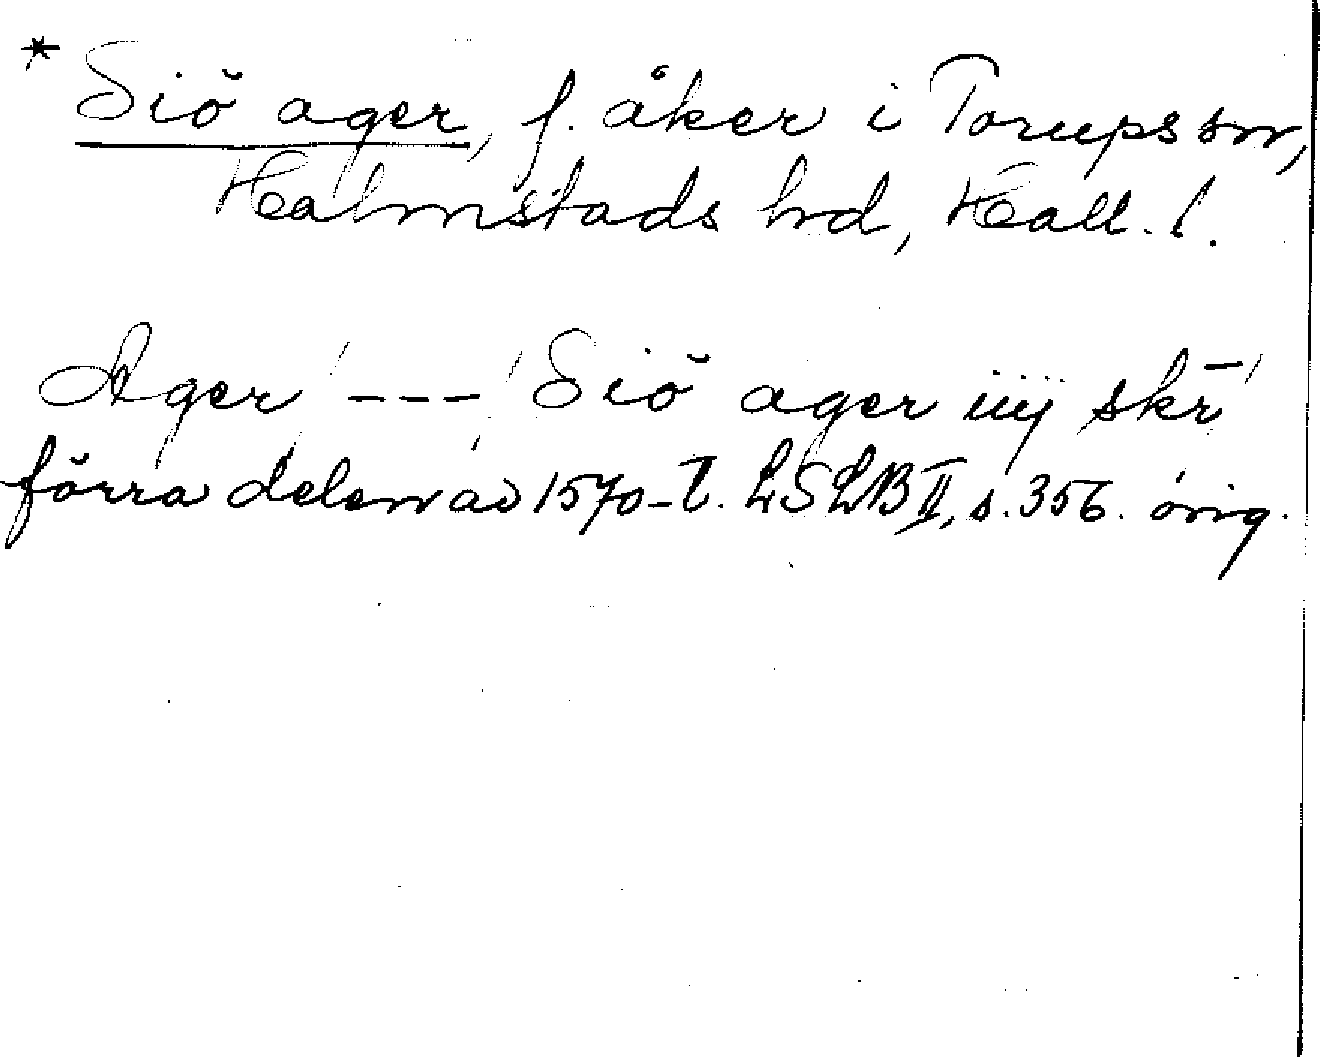 * Siö ager, f. åker i Torups sn,
Halmstads hd, Hall. l.
Ager' --- 'Siö ager iiij skr̄'
förra delen av 1570-t. LSLB II, s. 356. orig.